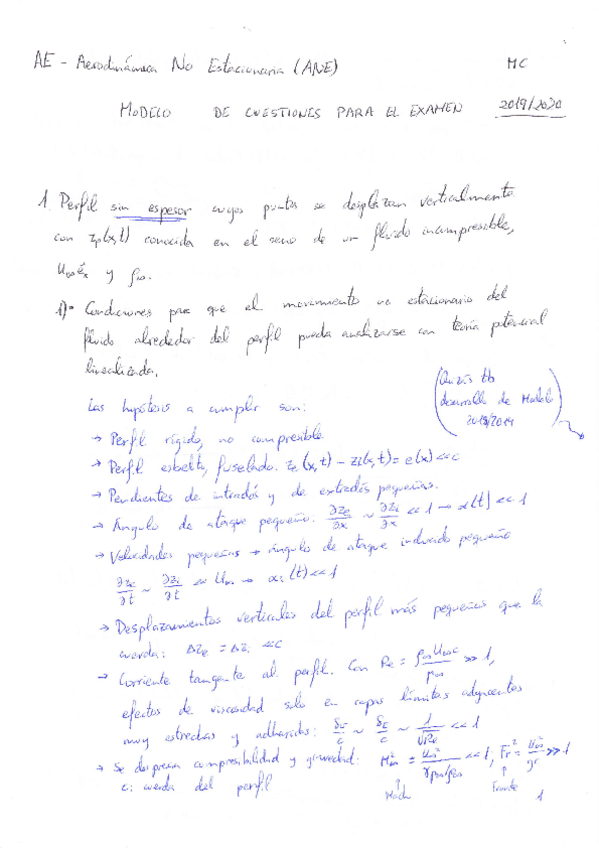 AE - Aerodinámica No Estacionaria (ANE) MC
MODELO DE CUESTIONES PARA EL EXAMEN 2019/2020
1. Perfil sin espesor cuyos puntos se desplazan verticalmente
con zp(x,t) conocida en el seno de un fluido incompresible,
U∞ēx y ρ∞.
1)• Condiciones para que el movimiento no estacionario del
fluido alrededor del perfil pueda analizarse con teoría potencial
linealizada.
(Quizás tb
desarrollo de Modelo
2018/2019)
Las hipótesis a cumplir son:
→ Perfil rígido, no compresible
→ Perfil esbelto, fuselado. ze(x,t) - zi(x,t) = e(x) << c
→ Pendientes de intradós y de extradós pequeñas.
→ Ángulo de ataque pequeño. ∂ze/∂x ~ ∂zi/∂x << 1 → α(t) << 1
→ Velocidades pequeñas → ángulo de ataque inducido pequeño
∂ze/∂t ~ ∂zi/∂t << U∞ → αi(t) << 1
→ Desplazamientos verticales del perfil más pequeños que la
cuerda: Δze = Δzi << c
→ Corriente tangente al perfil. Con Re = ρ∞U∞c/μ∞ >> 1,
efectos de viscosidad solo en capas límites adyacentes
muy estrechas y adheridas: ~ ~ 1/√Re << 1
→ Se desprecia compresibilidad y gravedad: M∞² = U∞²/γp∞/ρ∞ << 1; Fr² = U∞²/gc >> 1
c: cuerda del perfil Mach Froude
1